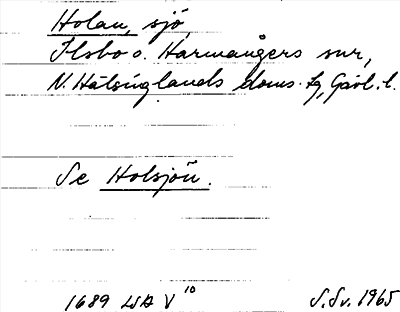 Holan, sjö
Ilsbo o. Harmångers snr,
N. Hälsinglands doms. tg, Gävl. l.
Se Holsjön.
1689 LSA V 10 S. Sv. 1965